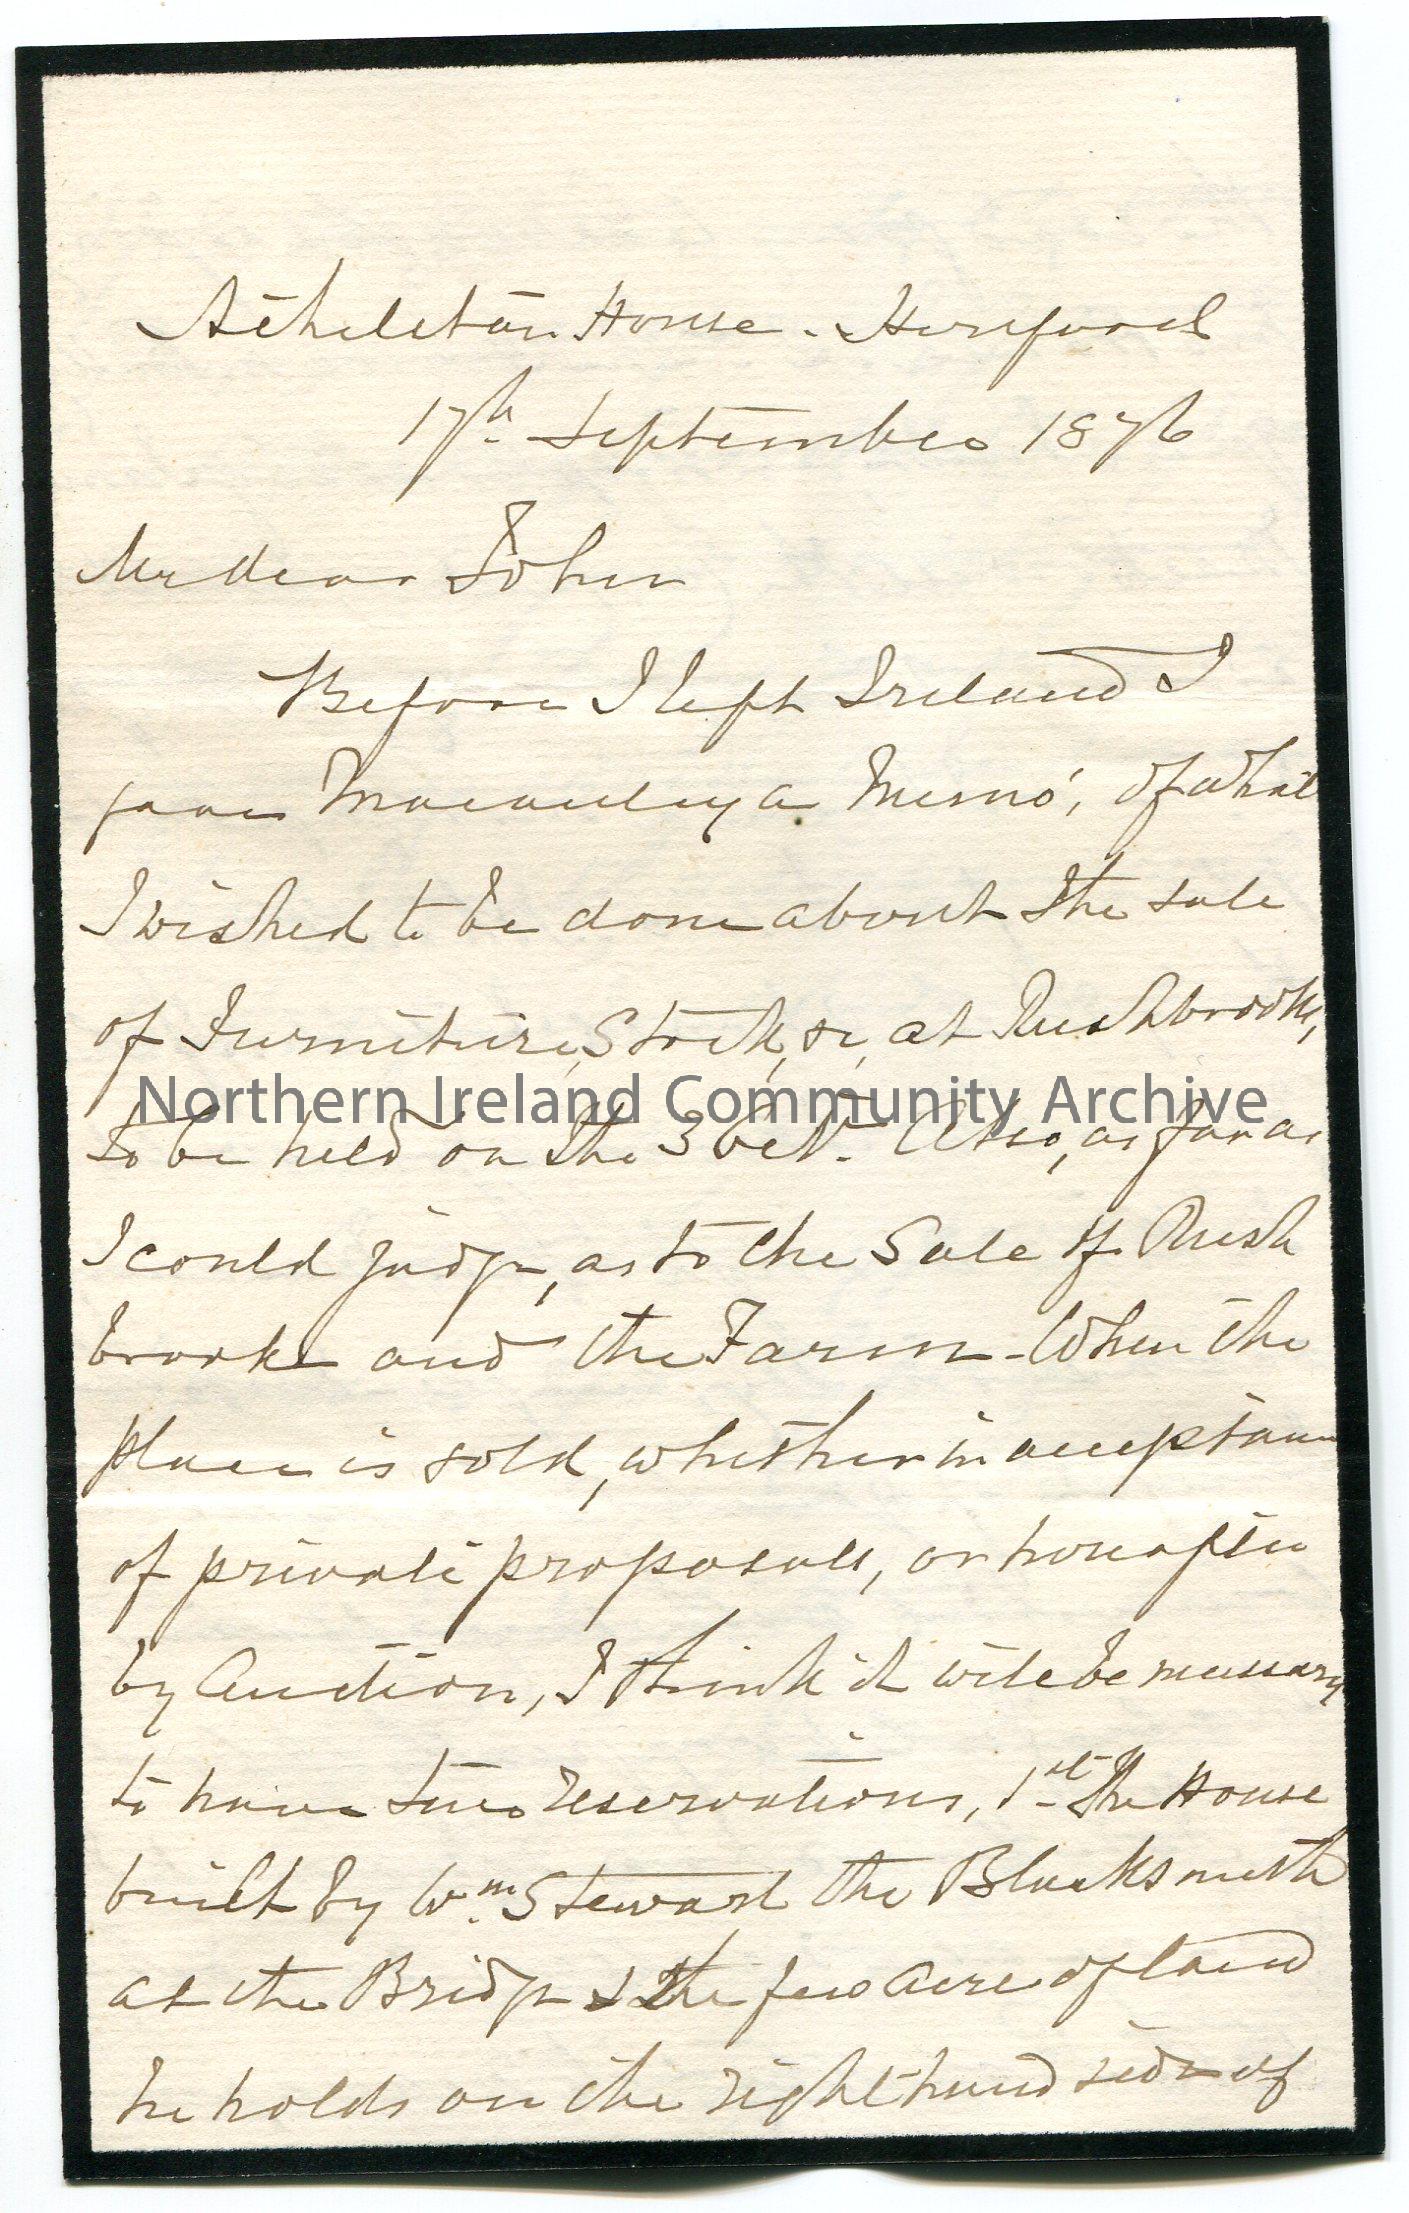 House - Hereford
17th September 1876
My dear John
Before I left Ireland I
gave Macauley a Memo', of what
I wished to be done about the sale
of Furniture, Stock, &c, at Rushbrooke,
Northern Ireland Community Archive
to be held on the 3 Oct. Also, as far as
I could judge, as to the Sale of Rush
brooke and the Farm - When the
place is sold, whether in acceptance
of private proposals, or hereafter
by Auction, I think it will be necessary
to have two reservations, 1st The House
built by Wm Stewart the Blacksmith
at the Bridge & the few acre of land
he holds on the right hand side of